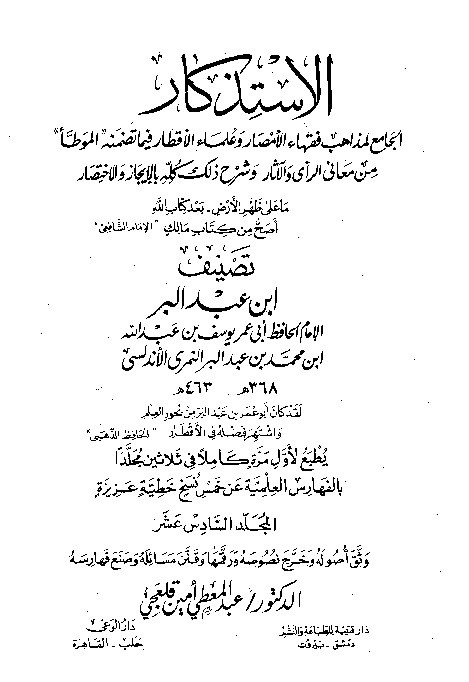 الاستذكار
الجامع لمذاهب فقهاء الأمصار وعلماء الأقطار فيما تضمنه "الموطأ"
من معاني الرأي والآثار وشرح ذلك كله بالإيجاز والاختصار
ما على ظهر الأرض - بعد كتاب الله
أصح من كتاب مالك "الإمام الشافعي"
تصنيف
ابن عبد البر
الإمام الحافظ أبي عمر يوسف بن عبد الله
ابن محمد بن عبد البر النمري الأندلسي
٣٦٨هـ ٤٦٣هـ
لقد كان أبو عمر بن عبد البر من بحور العلم
واشتهر فضله في الأقطار "الحافظ الذهبي"
يطبع لأول مرة كاملا في ثلاثين مجلدا
بالفهارس العلمية عن خمس نسخ خطية عزيزة
المجلد السادس عشر
وثق أصوله وخرج نصوصه ورقمها وقنن مسائله وصنع فهارسه
الدكتور/ عبد المعطي أمين قلعجي
دار قتيبة للطباعة والنشر
دمشق - بيروت
دار الوعي
حلب - القاهرة